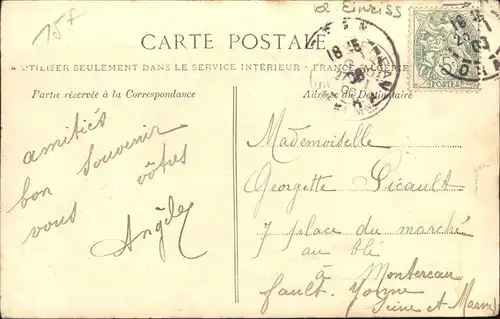 15f
kl Einriss
CARTE POSTALE
A UTILISER SEULEMENT DANS LE SERVICE INTÉRIEUR - FRANCE, ALGÉRIE
Partie réservée à la Correspondance
Adresse du Destinataire
5
POSTES
amitiés
bon souvenir
vous vôtus
Angèle
Mademoiselle
Georgette Picault
7 place du marché
au blé
à Montereau
fault-Yonne
Seine et Marne